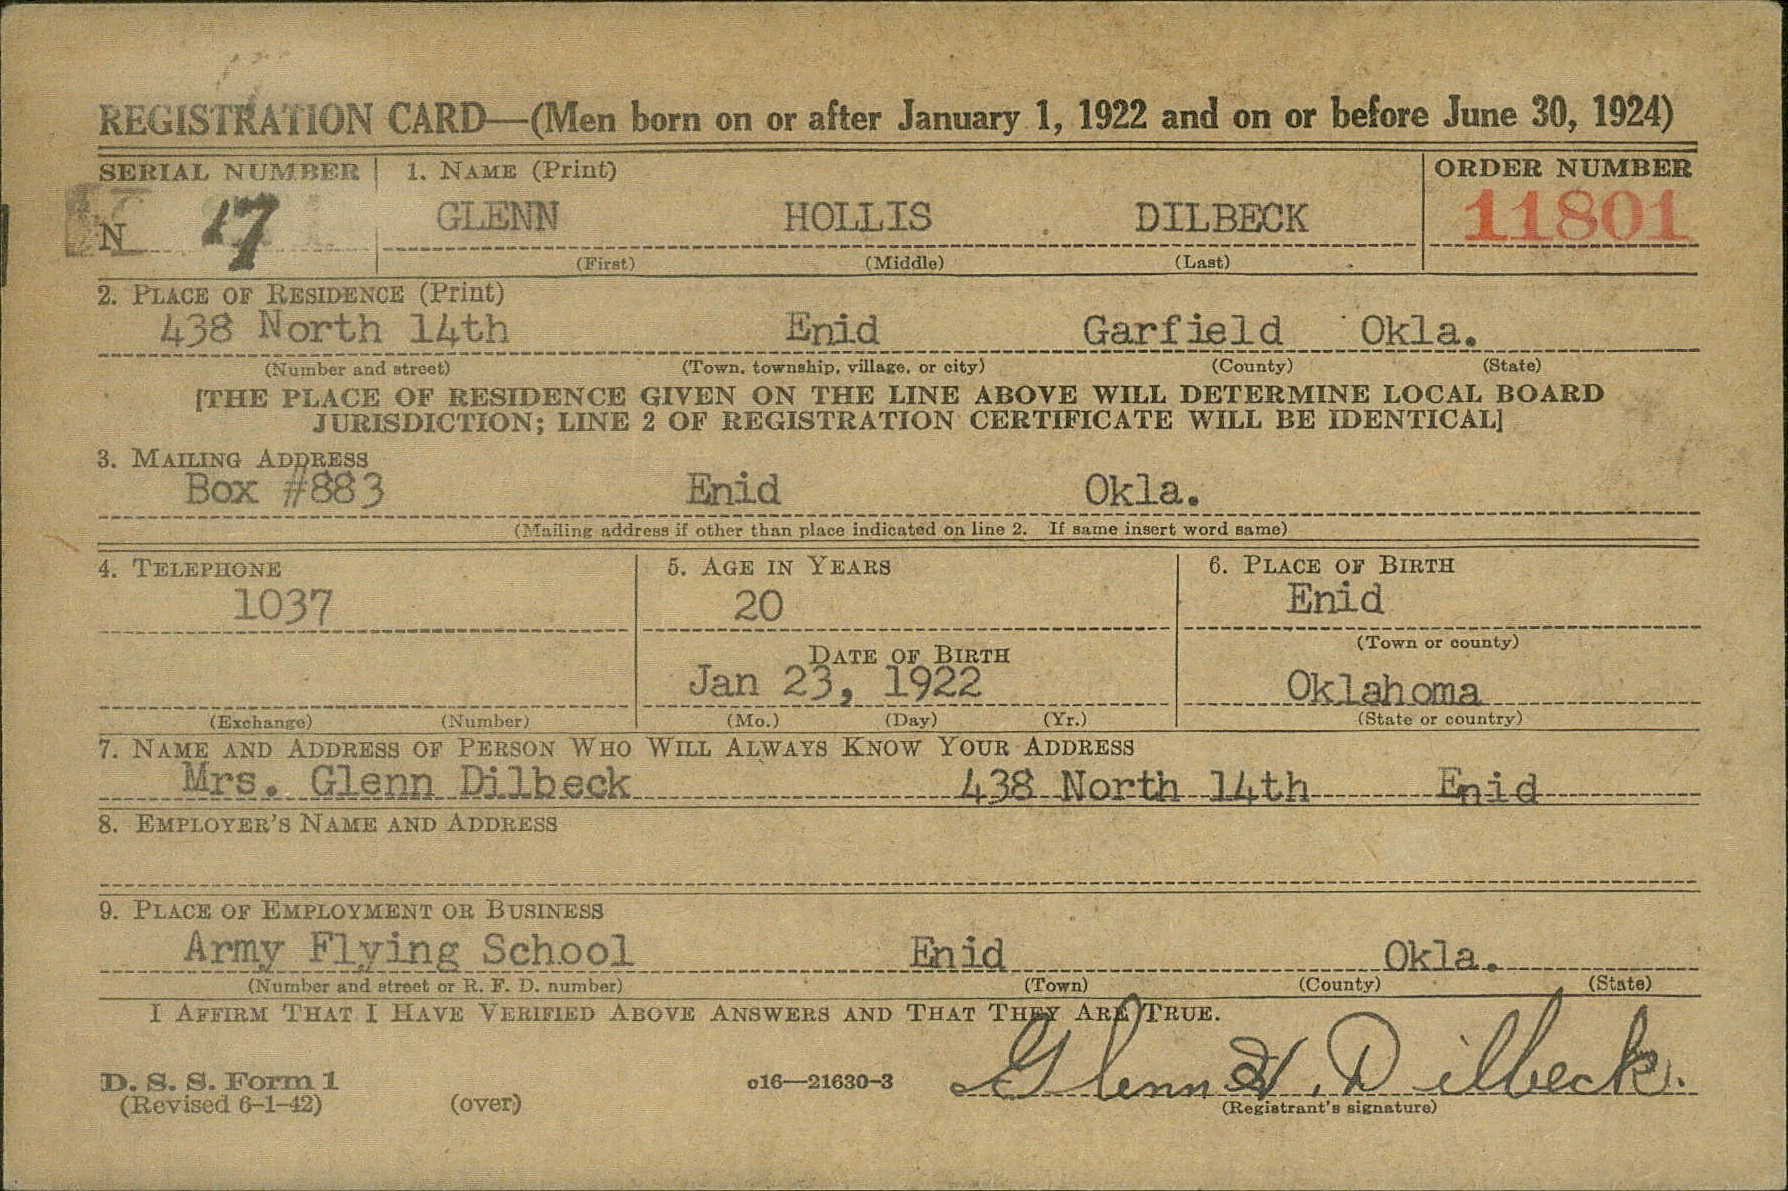 REGISTRATION CARD—(Men born on or after January 1, 1922 and on or before June 30, 1924)
SERIAL NUMBER 1. NAME (Print) ORDER NUMBER
N 17 GLENN HOLLIS DILBECK 11801
(First) (Middle) (Last)
2. PLACE OF RESIDENCE (Print)
438 North 14th Enid Garfield Okla.
(Number and street) (Town, township, village, or city) (County) (State)
[THE PLACE OF RESIDENCE GIVEN ON THE LINE ABOVE WILL DETERMINE LOCAL BOARD
JURISDICTION; LINE 2 OF REGISTRATION CERTIFICATE WILL BE IDENTICAL]
3. MAILING ADDRESS
Box #883 Enid Okla.
(Mailing address if other than place indicated on line 2. If same insert word same)
4. TELEPHONE 5. AGE IN YEARS 6. PLACE OF BIRTH
1037 20 Enid
(Town or county)
DATE OF BIRTH
Jan 23, 1922 Oklahoma
(Exchange) (Number) (Mo.) (Day) (Yr.) (State or country)
7. NAME AND ADDRESS OF PERSON WHO WILL ALWAYS KNOW YOUR ADDRESS
Mrs. Glenn Dilbeck 438 North 14th Enid
8. EMPLOYER'S NAME AND ADDRESS
9. PLACE OF EMPLOYMENT OR BUSINESS
Army Flying School Enid Okla.
(Number and street or R. F. D. number) (Town) (County) (State)
I AFFIRM THAT I HAVE VERIFIED ABOVE ANSWERS AND THAT THEY ARE TRUE.
D. S. S. Form 1
(Revised 6-1-42) (over) o16—21630-3 Glenn H. Dilbeck.
(Registrant's signature)